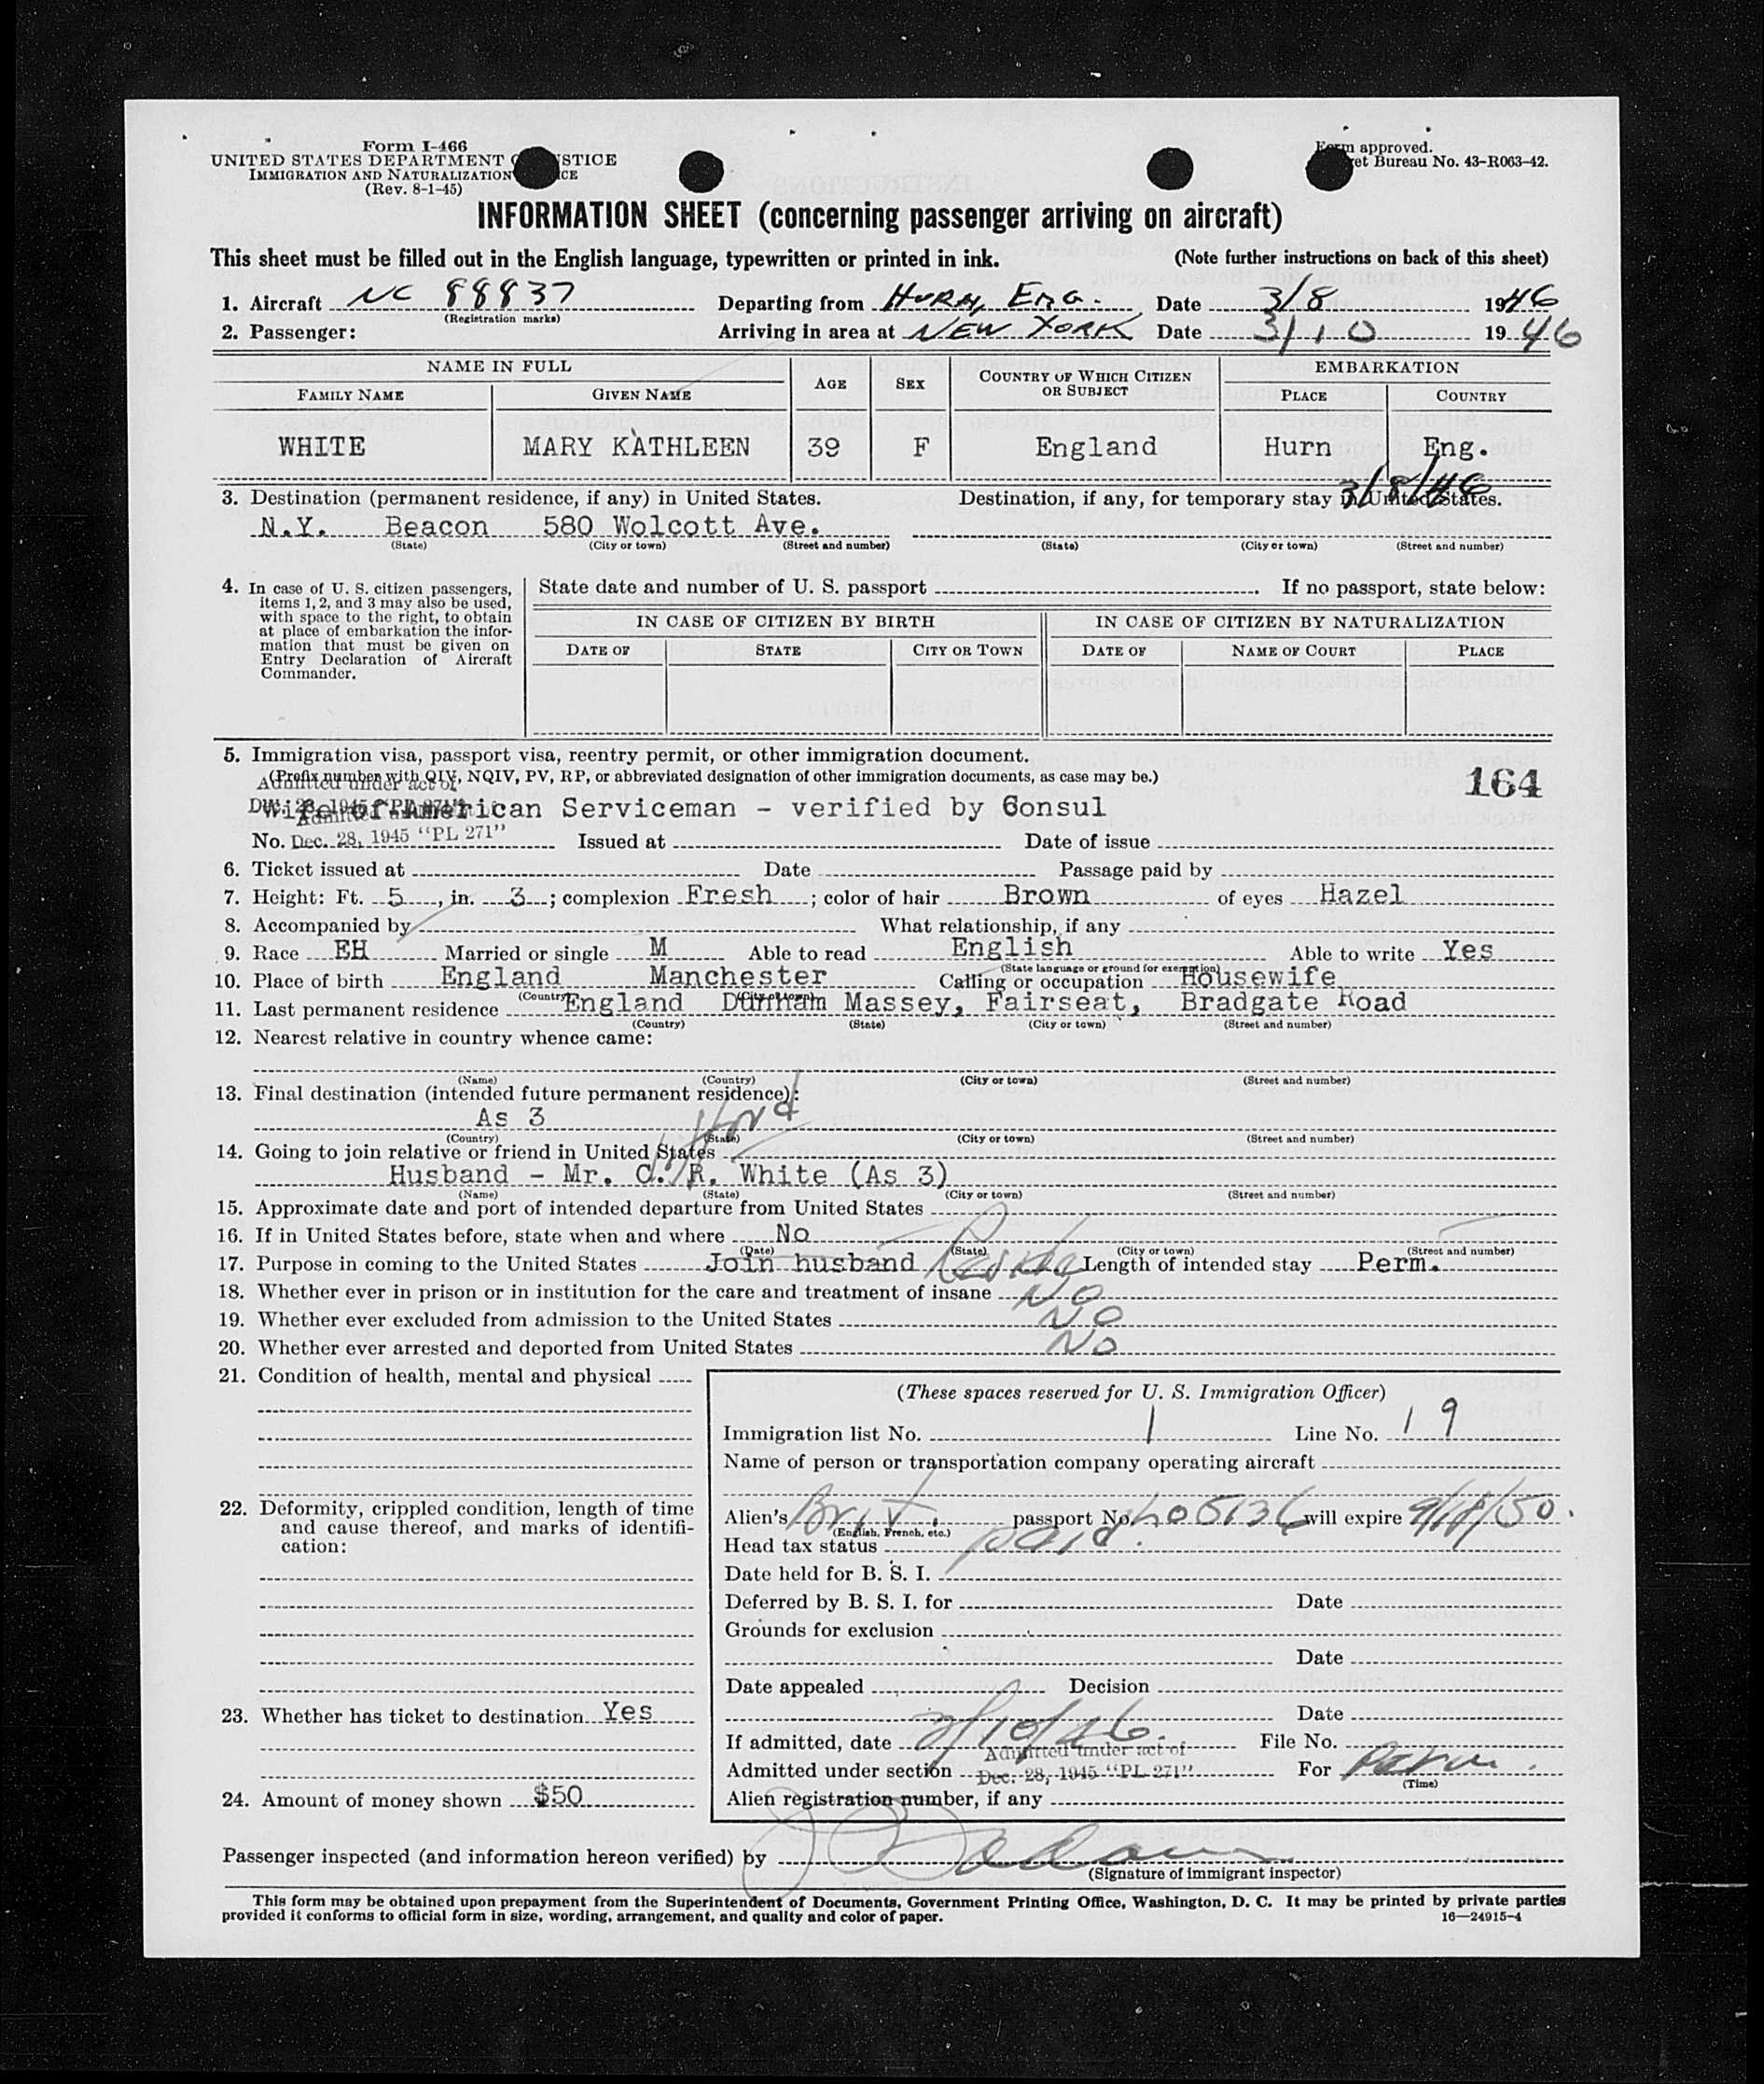 Form I-466
UNITED STATES DEPARTMENT STICE
IMMIGRATION AND NATURALIZATION ICE
(Rev. 8-1-45)
Form approved.
et Bureau No. 43-R063-42.
INFORMATION SHEET (concerning passenger arriving on aircraft)
This sheet must be filled out in the English language, typewritten or printed in ink. (Note further instructions on back of this sheet)
1. Aircraft NC 88837 Departing from HURN, ENG. Date 3/8 1946
(Registration marks)
2. Passenger: Arriving in area at NEW YORK Date 3/10 1946
NAME IN FULL AGE SEX COUNTRY OF WHICH CITIZEN OR SUBJECT EMBARKATION
FAMILY NAME GIVEN NAME PLACE COUNTRY
WHITE MARY KATHLEEN 39 F England Hurn Eng.
3/8/46
3. Destination (permanent residence, if any) in United States. Destination, if any, for temporary stay in United States.
N.Y. Beacon 580 Wolcott Ave.
(State) (City or town) (Street and number) (State) (City or town) (Street and number)
4. In case of U. S. citizen passengers, items 1, 2, and 3 may also be used, with space to the right, to obtain at place of embarkation the information that must be given on Entry Declaration of Aircraft Commander.
State date and number of U. S. passport . If no passport, state below:
IN CASE OF CITIZEN BY BIRTH IN CASE OF CITIZEN BY NATURALIZATION
DATE OF STATE CITY OR TOWN DATE OF NAME OF COURT PLACE
5. Immigration visa, passport visa, reentry permit, or other immigration document.
(Prefix number with QIV, NQIV, PV, RP, or abbreviated designation of other immigration documents, as case may be.)
164
Admitted under act of
Wife of American Serviceman - verified by Consul
No. Dec. 28, 1945 "PL 271" Issued at Date of issue
6. Ticket issued at Date Passage paid by
7. Height: Ft. 5, in. 3; complexion Fresh; color of hair Brown of eyes Hazel
8. Accompanied by What relationship, if any
9. Race EH Married or single M Able to read English Able to write Yes
(State language or ground for exemption)
10. Place of birth England Manchester Calling or occupation Housewife
(Country) (City or town)
11. Last permanent residence England Dunham Massey, Fairseat, Bradgate Road
(Country) (State) (City or town) (Street and number)
12. Nearest relative in country whence came:
(Name) (Country) (City or town) (Street and number)
13. Final destination (intended future permanent residence):
As 3
(Country) (State) (City or town) (Street and number)
14. Going to join relative or friend in United States
Husband - Mr. C. R. White (As 3)
(Name) (State) (City or town) (Street and number)
15. Approximate date and port of intended departure from United States
16. If in United States before, state when and where No
(Date) (State) (City or town) (Street and number)
17. Purpose in coming to the United States Join husband Length of intended stay Perm.
18. Whether ever in prison or in institution for the care and treatment of insane NO
19. Whether ever excluded from admission to the United States NO
20. Whether ever arrested and deported from United States NO
21. Condition of health, mental and physical
(These spaces reserved for U. S. Immigration Officer)
Immigration list No. 1 Line No. 19
Name of person or transportation company operating aircraft
22. Deformity, crippled condition, length of time and cause thereof, and marks of identification:
Alien's Brit. passport No. 405136 will expire 9/18/50.
(English, French, etc.)
Head tax status paid.
Date held for B. S. I.
Deferred by B. S. I. for Date
Grounds for exclusion
Date
Date appealed Decision
23. Whether has ticket to destination Yes
Date
If admitted, date 3/10/46. File No.
Admitted under act of
Admitted under section Dec. 28, 1945 "PL 271" For Perm.
(Time)
24. Amount of money shown $50
Alien registration number, if any
Passenger inspected (and information hereon verified) by
(Signature of immigrant inspector)
This form may be obtained upon prepayment from the Superintendent of Documents, Government Printing Office, Washington, D. C. It may be printed by private parties
provided it conforms to official form in size, wording, arrangement, and quality and color of paper. 16—24915-4